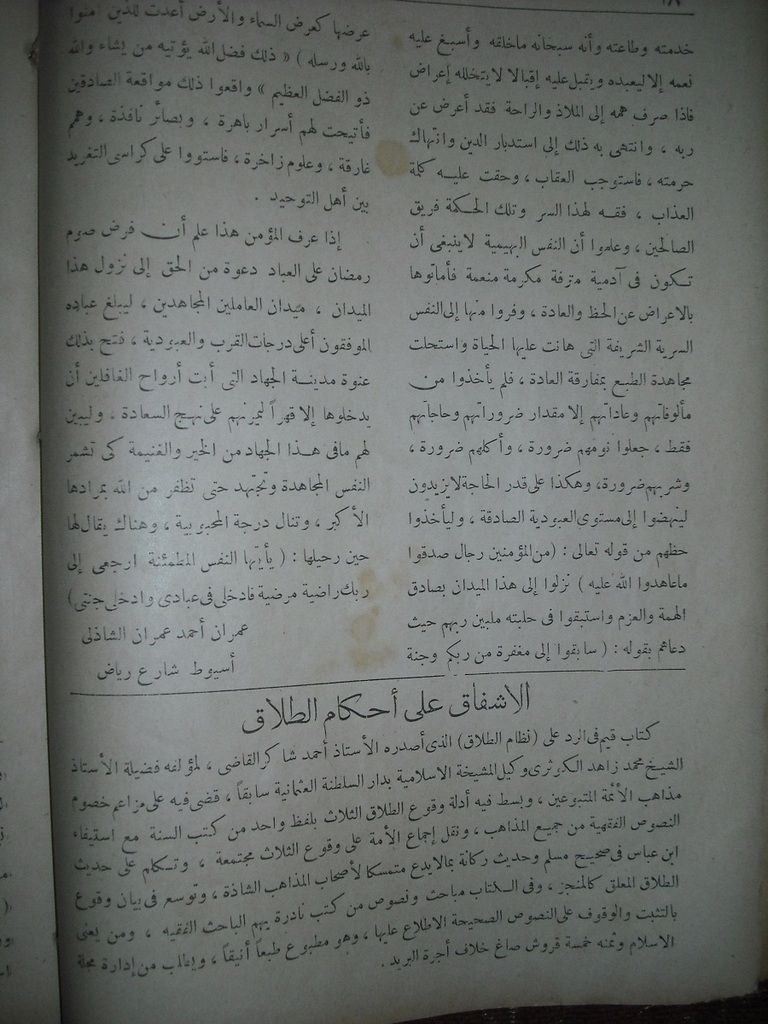 ١٨
خدمته وطاعته وأنه سبحانه ماخلقه وأسبغ عليه
نعمه إلا ليعبده ويقبل عليه إقبالا لا يتخلله إعراض
فاذا صرف همه إلى الملاذ والراحة فقد أعرض عن
ربه ، وانتهى به ذلك إلى استدبار الدين وانتهاك
حرمته ، فاستوجب العقاب ، وحقت عليه كلمة
العذاب ، فقه لهذا السر وتلك الحكمة فريق
الصالحين ، وعلموا أن النفس البهيمية لا ينبغى أن
تكون فى آدمية مترفة مكرمة منعمة فأماتوها
بالاعراض عن الحظ والعادة ، وفروا منها إلى النفس
السرية الشريفة التى هانت عليها الحياة واستحلت
مجاهدة الطبع بمفارقة العادة ، فلم يأخذوا من
مألوفاتهم وعاداتهم إلا مقدار ضروراتهم وحاجاتهم
فقط ، جعلوا نومهم ضرورة ، وأكلهم ضرورة ،
وشربهم ضرورة، وهكذا على قدر الحاجة لا يزيدون
لينهضوا إلى مستوى العبودية الصادقة ، وليأخذوا
حظهم من قوله تعالى : (من المؤمنين رجال صدقوا
ماعاهدوا الله عليه ) نزلوا إلى هذا الميدان بصادق
الهمة والعزم واستبقوا فى حلبته ملبين ربهم حيث
دعاهم بقوله : ( سابقوا إلى مغفرة من ربكم وجنة
عرضها كعرض السماء والأرض أعدت للذين آمنوا
بالله ورسله ) « ذلك فضل الله يؤتيه من يشاء والله
ذو الفضل العظيم » واقعوا ذلك مواقعة الصادقين
فأتيحت لهم أسرار باهرة ، وبصائر نافذة ، وهمم
غارقة ، وعلوم زاخرة ، فاستووا على كراسى التغريد
بين أهل التوحيد .
إذا عرف المؤمن هذا علم أن فرض صوم
رمضان على العباد دعوة من الحق إلى نزول هذا
الميدان ، ميدان العاملين المجاهدين ، ليبلغ عباده
الموفقون أعلى درجات القرب والعبودية ، فتح بذلك
عنوة مدينة الجهاد التى أبت أرواح الغافلين أن
يدخلوها إلا قهراً ليمرنهم على نهج السعادة ، وليبين
لهم مافى هذا الجهاد من الخير والغنيمة كى تشمر
النفس المجاهدة وتجتهد حتى تظفر من الله بمرادها
الأكبر ، وتنال درجة المحبوبية ، وهناك يقال لها
حين رحيلها : ( يأيتها النفس المطمئنة ارجعى إلى
ربك راضية مرضية فادخلى فى عبادى وادخلى جنتى)
عمران أحمد عمران الشاذلى
أسيوط شارع رياض
الاشفاق على أحكام الطلاق
كتاب قيم فى الرد على (نظام الطلاق) الذى أصدره الأستاذ أحمد شاكر القاضى ، لمؤلفه فضيلة الأستاذ
الشيخ محمد زاهد الكوثرى وكيل المشيخة الاسلامية بدار السلطنة العثمانية سابقاً ، قضى فيه على مزاعم خصوم
مذاهب الأئمة المتبوعين ، وبسط فيه أدلة وقوع الطلاق الثلاث بلفظ واحد من كتب السنة مع استيفاء
النصوص الفقهية من جميع المذاهب ، ونقل إجماع الأمة على وقوع الثلاث مجتمعة ، وتسكلم على حديث
ابن عباس فى صحيح مسلم وحديث ركانة بما لايدع متمسكا لأصحاب المذاهب الشاذة ، وتوسع فى بيان وقوع
الطلاق المعلق كالمنجز ، وفى الكتاب مباحث ونصوص من كتب نادرة يهم الباحث الفقيه ، ومن يعنى
بالتثبت والوقوف على النصوص الصحيحة الاطلاع عليها ، وهو مطبوع طبعاً أنيقاً ، ويطلب من إدارة مجلة
الاسلام وثمنه خمسة قروش صاغ خلاف أجرة البريد .